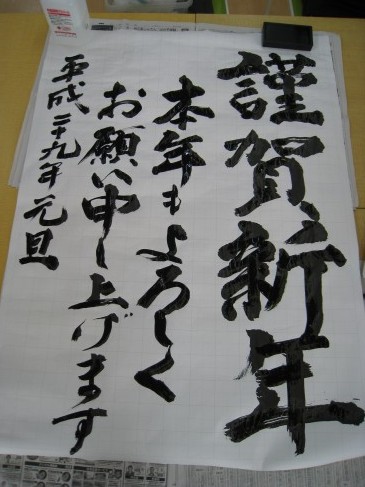 謹賀新年
本年もよろしく
お願い申し上げます
平成二十九年元旦